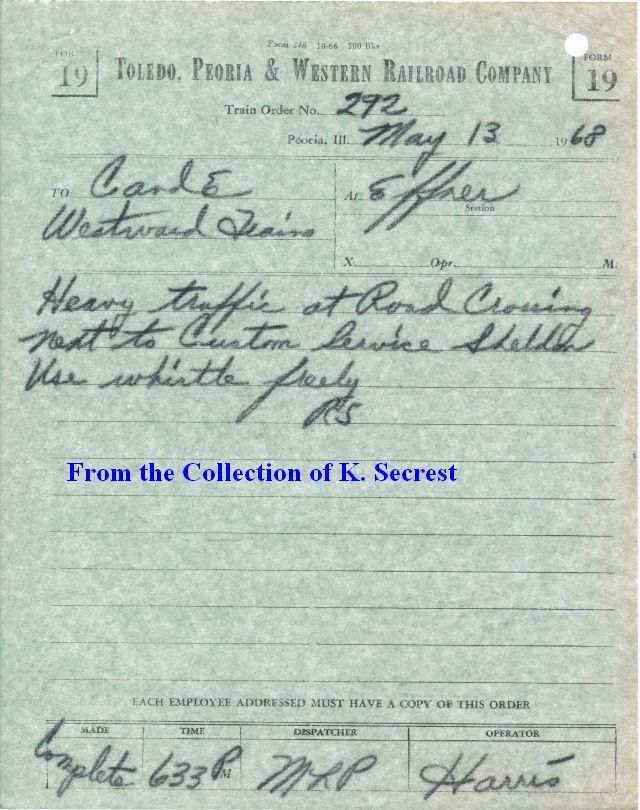 Form 248 10-66 500 Bks
FORM 19
TOLEDO, PEORIA & WESTERN RAILROAD COMPANY
FORM 19
Train Order No. 292
Peoria, Ill. May 13 1968
TO C and E
At Effner
Station
Westward Trains
X Opr. M.
Heavy traffic at Road Crossing
next to Custom Service Sheldon
Use whistle freely
RS
From the Collection of K. Secrest
EACH EMPLOYEE ADDRESSED MUST HAVE A COPY OF THIS ORDER
MADE TIME DISPATCHER OPERATOR
Complete 633 PM MLP Harris